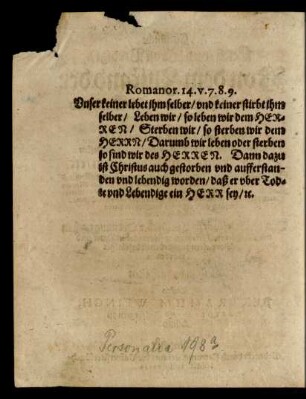 Romanor. 14. v. 7. 8. 9.
Vnser keiner lebet ihm selber/ vnd keiner stirbt ihm
selber/ Leben wir/ so leben wir dem HER-
REN/ Sterben wir/ so sterben wir dem
HERRN/ Darumb wir leben oder sterben
so sind wir des HERREN. Dann dazu
ist Christus auch gestorben vnd aufferstan-
den vnd lebendig worden/ daß er vber Tod-
te vnd Lebendige ein HERR sey/ ꝛc.
Personalia 198 a